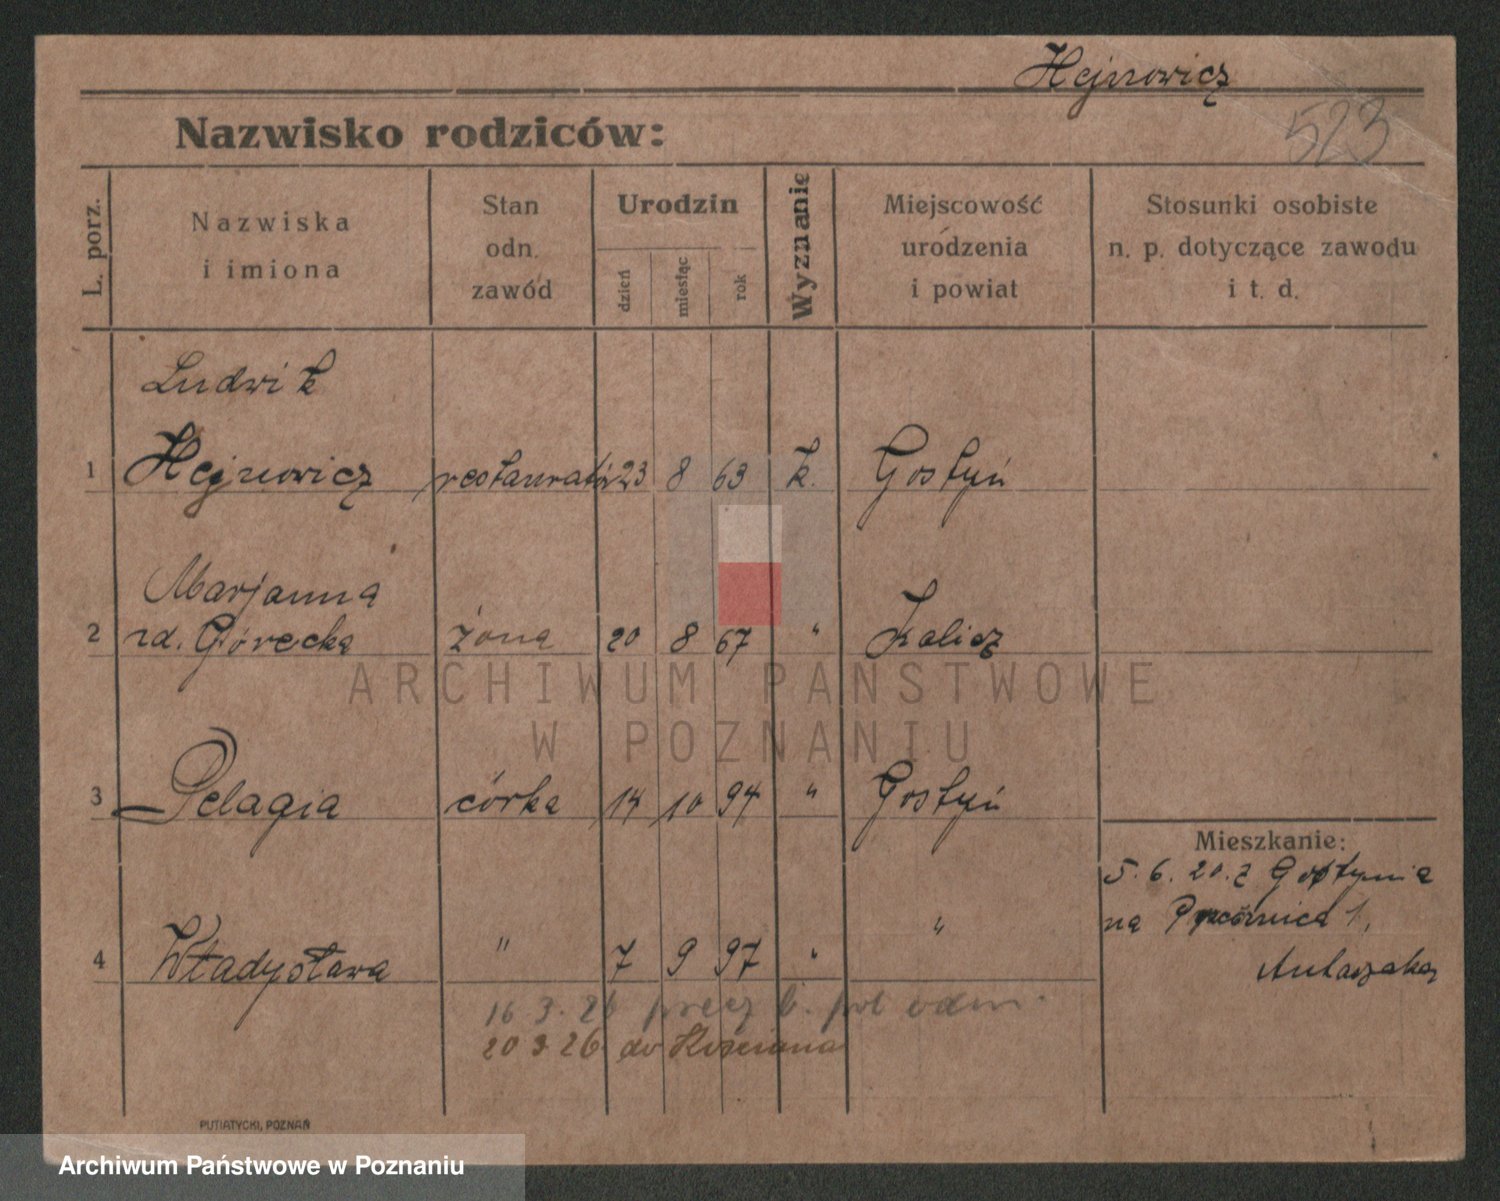 Hejnowicz
523
Nazwisko rodziców:
L. porz.
Nazwiska
i imiona
Stan
odn.
zawód
Urodzin
dzień
miesiąc
rok
Wyznanie
Miejscowość
urodzenia
i powiat
Stosunki osobiste
n. p. dotyczące zawodu
i t. d.
Ludwik
1 Hejnowicz restaurator 23 8 63 k. Gostyń
Marjanna
2 rd. Górecka żona 20 8 67 " Kalisz
3 Pelagia córka 14 10 94 " Gostyń
Mieszkanie:
5. 6. 20. z Gostynia
na 1,
4 Władysława " 7 9 97 " "
16. 3. 26 b. pol
20 3 26 do Kościana
PUTIATYCKI, POZNAŃ
ARCHIWUM PAŃSTWOWE
W POZNANIU
Archiwum Państwowe w Poznaniu